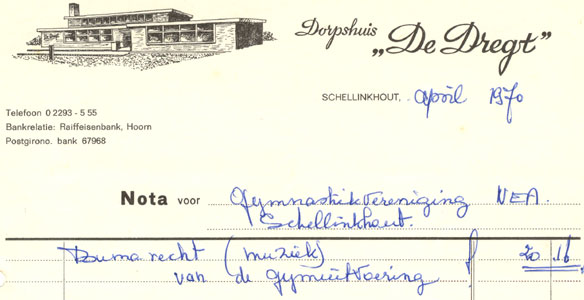 Dorpshuis
„De Dregt”
SCHELLINKHOUT, april 1970
Telefoon 0 2293 - 5 55
Bankrelatie: Raiffeisenbank, Hoorn
Postgirono. bank 67968
Nota voor Gymnastiekvereniging NEA.
Schellinkhout.
Bumarecht (muziek) f 20 16
van de gymuitvoering